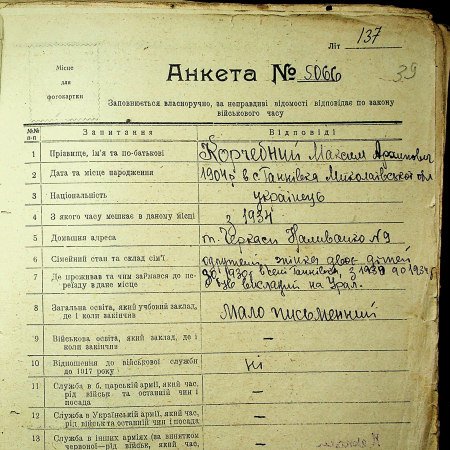 Літ 137
39
Місце
для
фотокартки
Анкета № 5066
Заповнюється власноручно, за неправдиві відомості відповідає по закону
військового часу
№№ п-п Запитання Відповіді
1 Прізвище, ім'я та по-батькові Корчебний Максим
2 Дата та місце народження 1904 р в с Ганнівка Миколаївської обл
3 Національність українець
4 З якого часу мешкає в даному місці з 1934
5 Домашня адреса м. Черкаси Наливайко №9
6 Сімейний стан та склад сім'ї. одружений, жінка двоє дітей
7 Де проживав та чим займався до пе-
реїзду в дане місце
до 1930 в селі Ганнівка, з 1930 до 1934 р
був висланий на Урал.
8 Загальна освіта, який учбовий заклад,
де і коли закінчив
Мало письменний
9 Військова освіта, який заклад, де і
коли закінчив
—
10 Відношення до військової служби
до 1917 року
ні
11 Служба в б. царській армії, який час,
рід військ та останній чин і
посада
—
12 Служба в Українській армії, який час,
рід військ, останній чин і посада
—
13 Служба в інших арміях (за винятком
червоної—рід військ, який час,
—